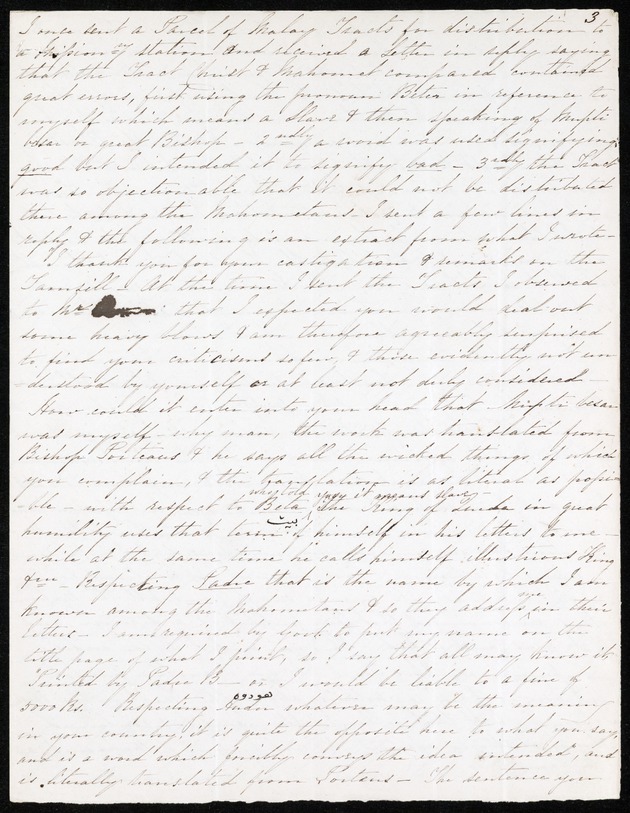 3
I once sent a Parcel of Malay Tracts for distribution to
a Missiony station and received a letter in reply saying
that the Tract Christ & Mahomet compared contained
great errors, first using the pronoun Beta in reference to
myself which means a Slave & then speaking of Mupti
besar or great Bishop - 2ndly a word was used signifying
good but I intended it to signify bad - 3rdly the Tract
was so objectionable that it could not be distributed
there among the Mahometans. I sent a few lines in
reply & the following is an extract from what I wrote -
"I thank you for your castigation & remarks on the
- At the time I sent the Tracts I observed
to Mr that I expected you would deal out
some heavy blows & am therefore agreeably surprised
to find your criticisms so few, & those evidently not un
-derstood by yourself or at least not duly considered -
How could it enter into your head that Mupti besar
was myself - why man, the work was translated from
Bishop Porteus & he says all the wicked things of which
you complain, & the translation is as literal as possi
-ble - with respect to Beta who told you it means slave
The King of in great
humility uses that term of himself in his letters to me -
while at the same time he calls himself illustrious King
&c - Respecting Padre that is the name by which I am
known among the Mahometans & so they address me in their
letters - I am required by Govt to put my name on the
title page of what I print, so I say that all may know it
Printed by Padre B - or I would be liable to a fine of
5000 Rs. Respecting whatever may be the meaning
in your country, it is quite the opposite here to what you say,
and is a word which forcibly conveys the idea intended, and
is literally translated from Porteus - The sentence you